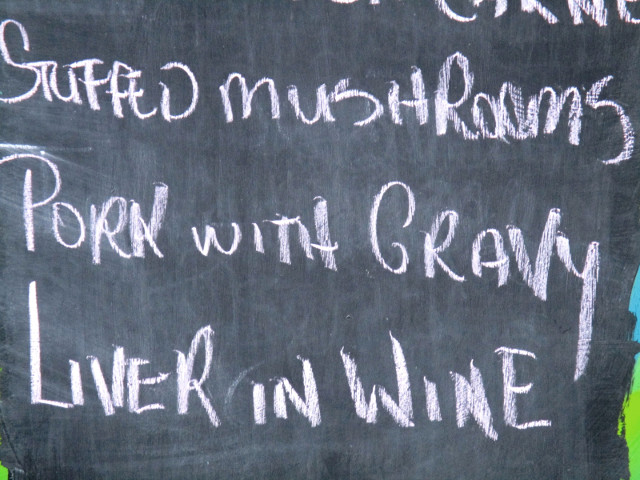 CARNE
STUFFED MUSHROOMS
PORN WITH GRAVY
LIVER IN WINE